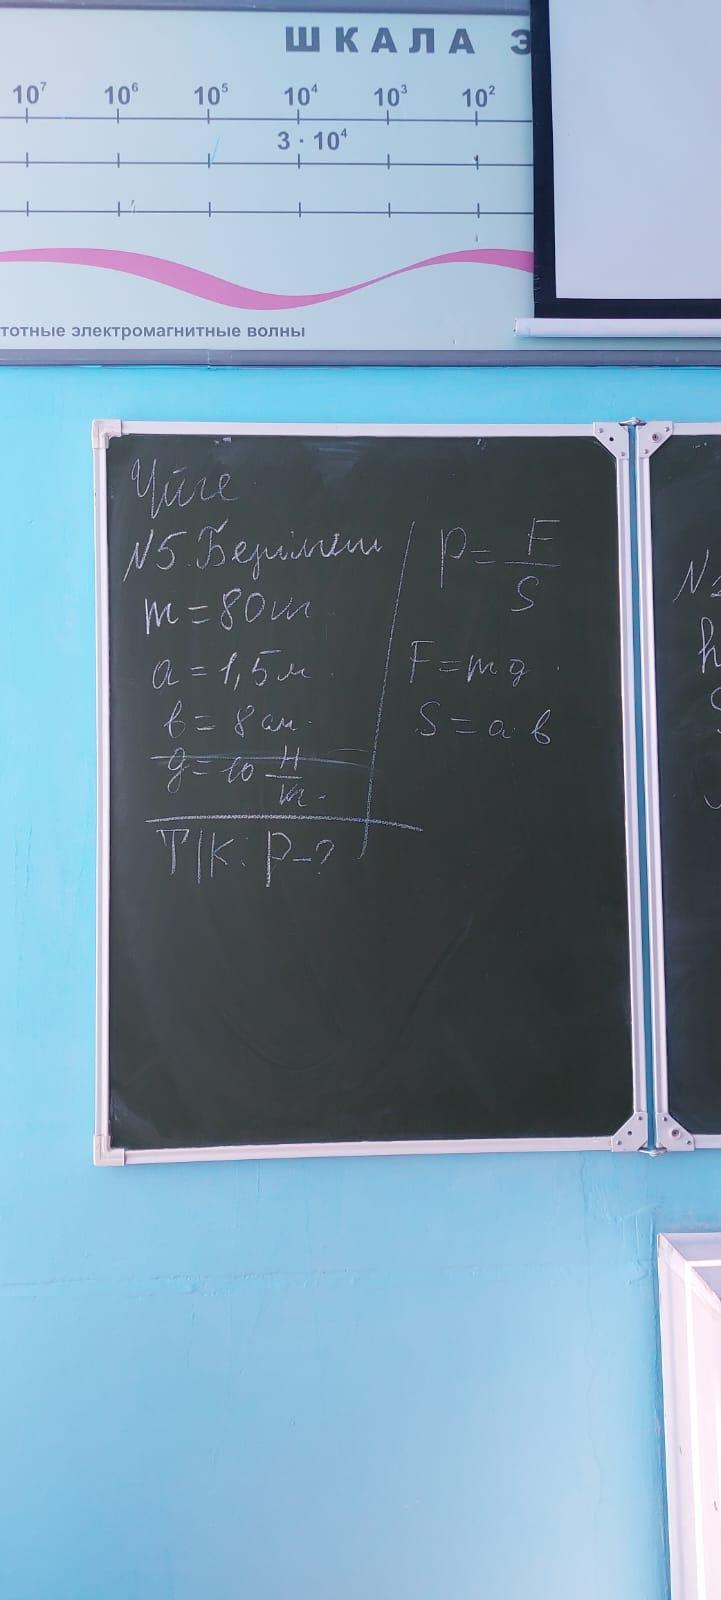 ШКАЛА Э
10⁷ 10⁶ 10⁵ 10⁴ 10³ 10²
3 · 10⁴
тотные электромагнитные волны
Үйге
N5. Берілгені
m = 80кг
a = 1,5м
b = 8см
g = 10 Н/кг
Т/К: p-?
p = F/S
F = mg
S = a·b
N
h